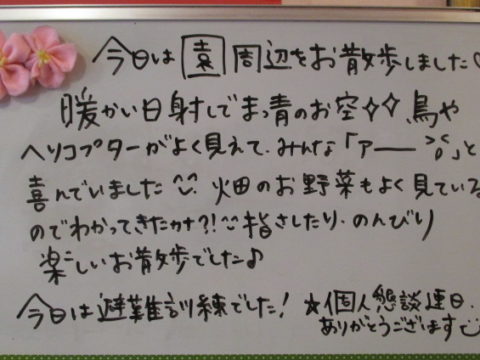 今日は園周辺をお散歩しました♡
暖かい日射しでまっ青のお空✧✧、鳥や
ヘリコプターがよく見えて、みんな「アー」と
喜んでいました^^ 火田のお野菜もよく見ている
のでわかってきたカナ?!^^指さしたり、のんびり
楽しいお散歩でした♪
今日は避難訓練でした! ★個人懇談連日、
ありがとうございます